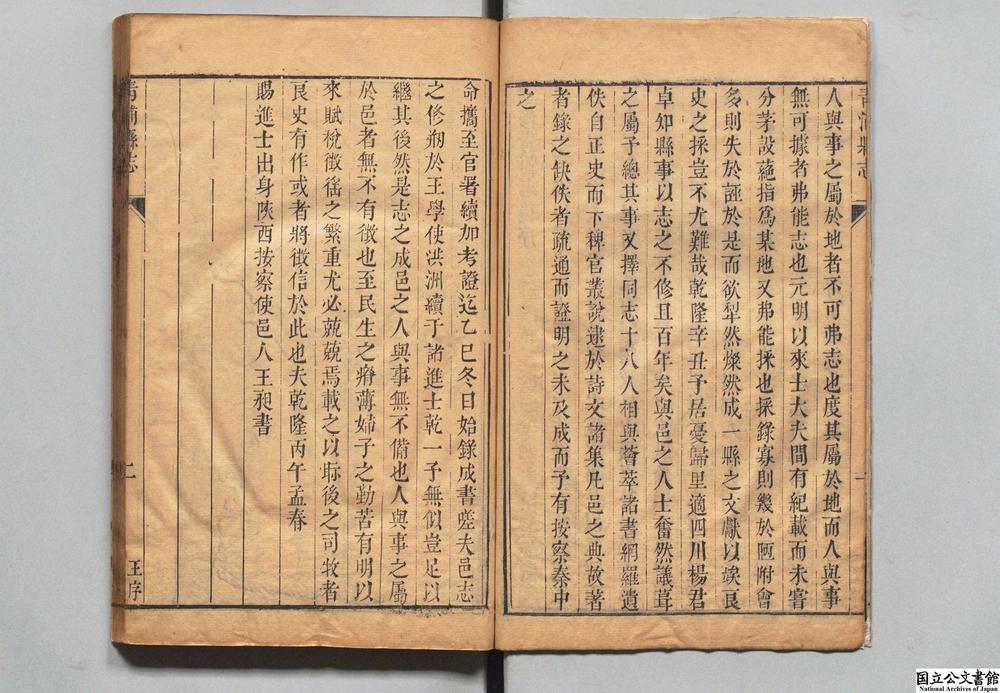 人與事之屬於地者不可弗志也度其屬於地而人與事
無可據者弗能志也元明以來士大夫間有紀載而未嘗
分茅設蕝指爲某地又弗能採也採錄寡則幾於陋附會
多則失於誣於是而欲犁然燦然成一縣之文獻以竢良
史之採豈不尤難哉乾隆辛丑予居憂歸里適四川楊君
卓知縣事以志之不修且百年矣與邑之人士奮然議葺
之屬予總其事又擇同志十八人相與薈萃諸書網羅遺
佚自正史而下稗官叢說逮於詩文諸集凡邑之典故著
者錄之缺佚者疏通而證明之未及成而予有按察秦中
之
青浦縣志
一
命攜至官署續加考證迄乙巳冬日始錄成書嗟夫邑志
之修刱於王學使洪洲續于諸進士乾一予無似豈足以
繼其後然是志之成邑之人與事無不備也人與事之屬
於邑者無不有徵也至民生之瘠薄婦子之勤苦有明以
來賦稅徵徭之繁重尤必兢兢焉載之以眎後之司牧者
良史有作或者將徵信於此也夫乾隆丙午孟春
賜進士出身陝西按察使邑人王昶書
青浦縣志
二
王序
国立公文書館
National Archives of Japan